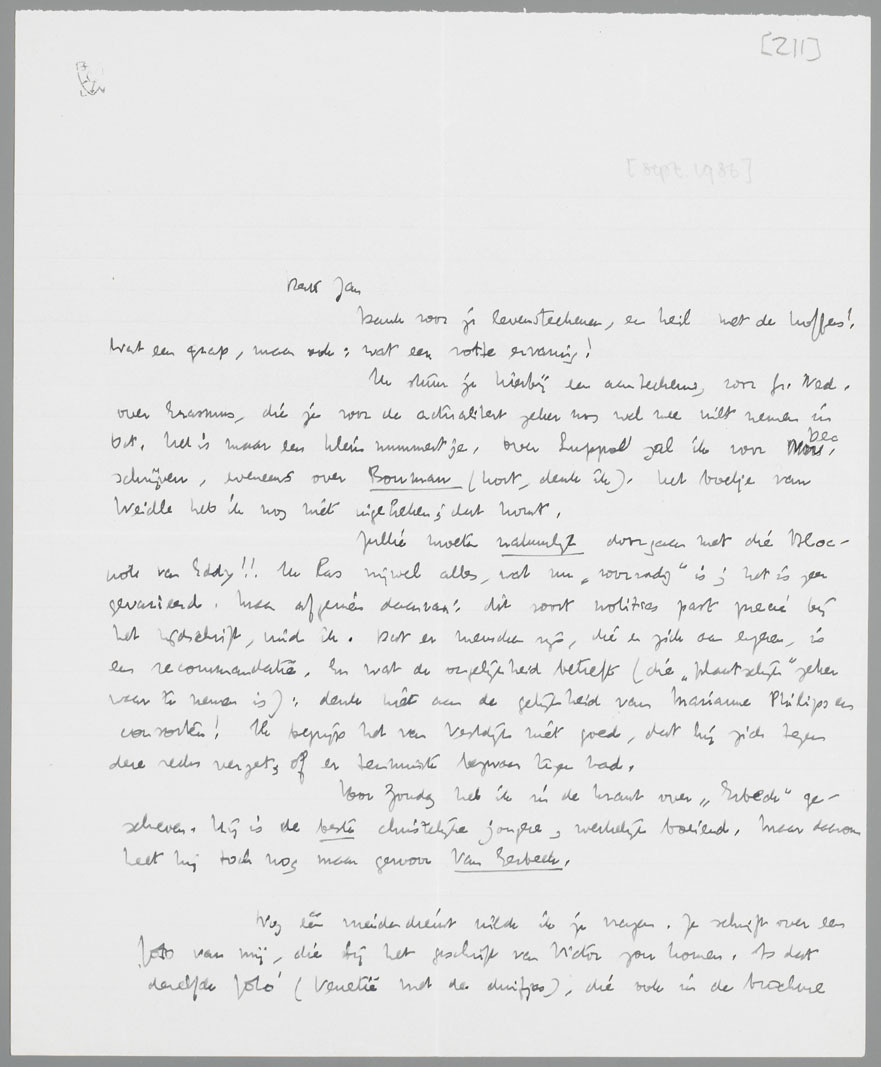 [211]
[sept. 1936]
Beste Jan
Dank voor je levensteekenen, en heil met de koffers!
Wat een grap, maar ook: wat een rotte ervaring!
Ik stuur je hierbij een aanteekening voor Gr. Ned.
over Erasmus, die je voor de actualiteit zeker nog wel mee wilt nemen in
Oct. Het is maar een klein nummertje. Over Luppol zal ik voor Dec
schrijven, eveneens over Bouman (kort, denk ik). Het boekje van
Weidlé heb ik nog niet ingekeken; dat komt.
Jullie moeten natuurlijk doorgaan met die Bloc-
note van Eddy!! Ik las nijwel alles, wat nu „voorradig" is; het is zeer
gevarieerd. Maar afgezien daarvan: dit soort notities past precies bij
het tijdschrift, vind ik. Dat er menschen zijn, die er zich aan ergeren, is
een recommandatie. En wat de ongelijkheid betreft (die „plaatselijk" zeker
waar te nemen is): denk niet aan de gelijkheid van Marianne Philips en
consorten! Ik begrijp het van Vestdijk niet goed, dat hij zich tegen
deze reeks verzet, of er tenminste bezwaar tegen had.
Voor Zondag heb ik in de krant over „Eerbeek" ge-
schreven. Hij is de beste christelijke jongere, werkelijk boeiend. Maar daarom
heet hij toch nog maar gewoon Van Eerbeek.
Nog één vriendendienst wilde ik je vragen. Je schrijft over een
foto van mij, die bij het geschrift van Victor zou komen. Is dat
dezelfde foto (Venetië met de duifjes), die ook in de brochure